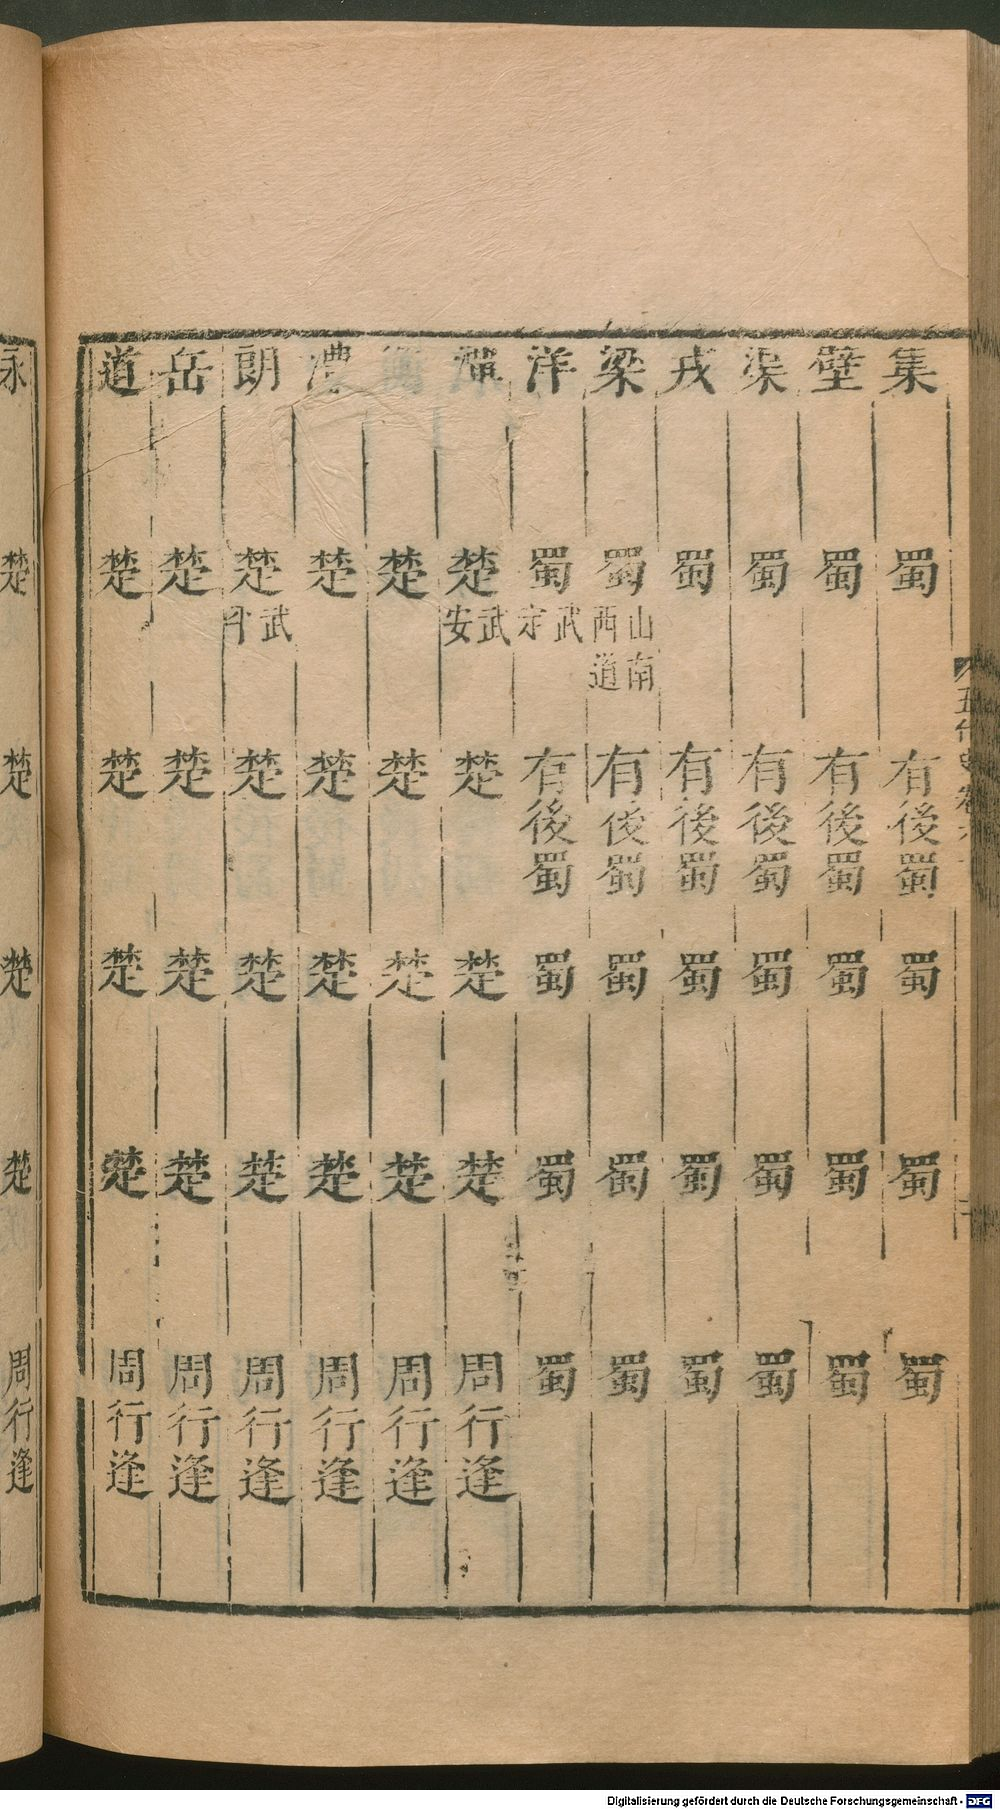 集 蜀 有後蜀 蜀 蜀 蜀
壁 蜀 有後蜀 蜀 蜀 蜀
渠 蜀 有後蜀 蜀 蜀 蜀
戎 蜀 有後蜀 蜀 蜀 蜀
梁 蜀 山南西道 有後蜀 蜀 蜀 蜀
洋 蜀 武定 有後蜀 蜀 蜀 蜀
潭 楚 武安 楚 楚 楚 周行逢
衡 楚 楚 楚 楚 周行逢
澧 楚 楚 楚 楚 周行逢
朗 楚 武 楚 楚 楚 周行逢
岳 楚 楚 楚 楚 周行逢
道 楚 楚 楚 楚 周行逢
永 楚 楚 楚 楚 周行逢
五代史 卷六
Digitalisierung gefördert durch die Deutsche Forschungsgemeinschaft - DFG